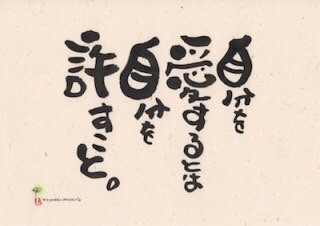 自分を
愛するとは
自分を
許すこと。